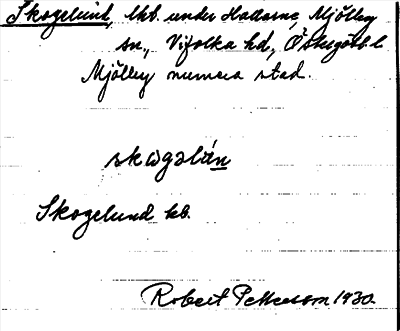 Skogelund, lkb. under Hallarne, Mjölby
sn., Vifolka hd, Östergötl. l
Mjölby numera stad.
skωgəlún
Skogelund lkb.
Robert Pettersson 1930.